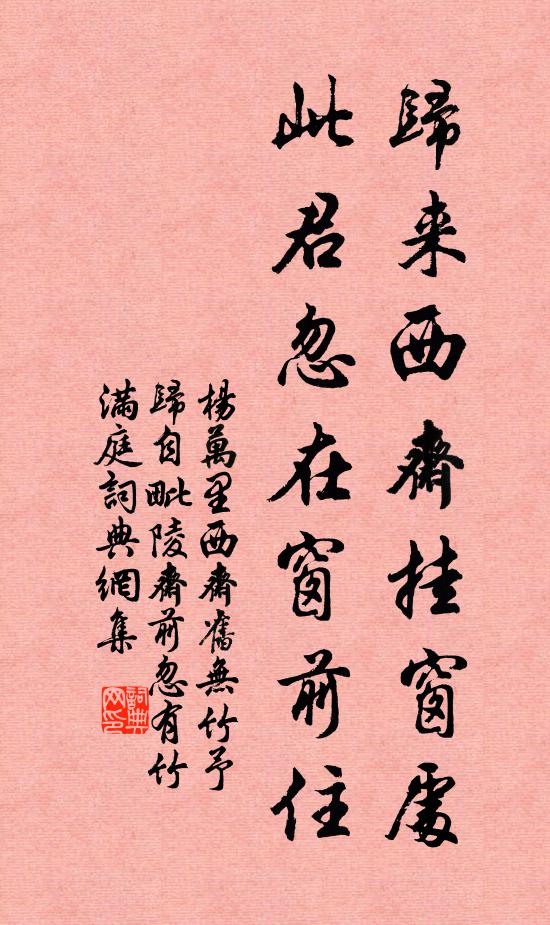 歸来西齋挂窗處
此君忽在窗前住
楊萬里西齋舊無竹予
歸自毗陵齋前忽有竹
滿庭詞典網集
詞典網印